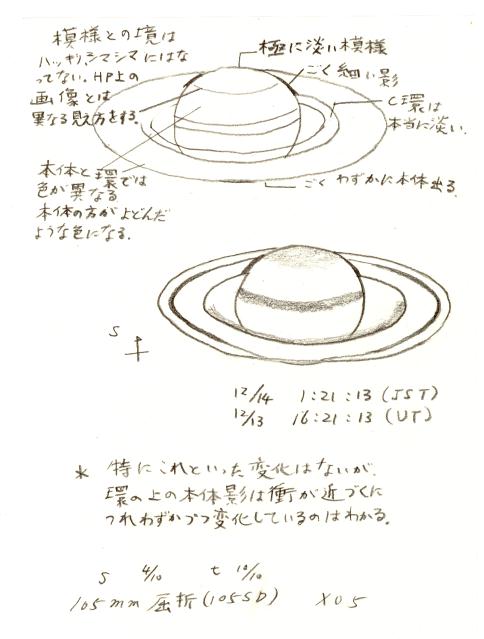 模様との境は
ハッキリシマシマにはな
ってない。HP上の
画像とは
異なる見え方をする。
極に淡い模様
ごく細い影
C環は
本当に淡い.
本体と環では
色が異なる
本体の方がよどんだ
ような色になる.
ごくわずかに本体出る.
S
12/14 1:21:13 (JST)
12/13 16:21:13 (UT)
* 特にこれといった変化はないが.
環の上の本体影は衝が近づくに
つれわずかづつ変化しているのはわかる。
S 4/10 t 10/10
105mm 屈折(105SD)